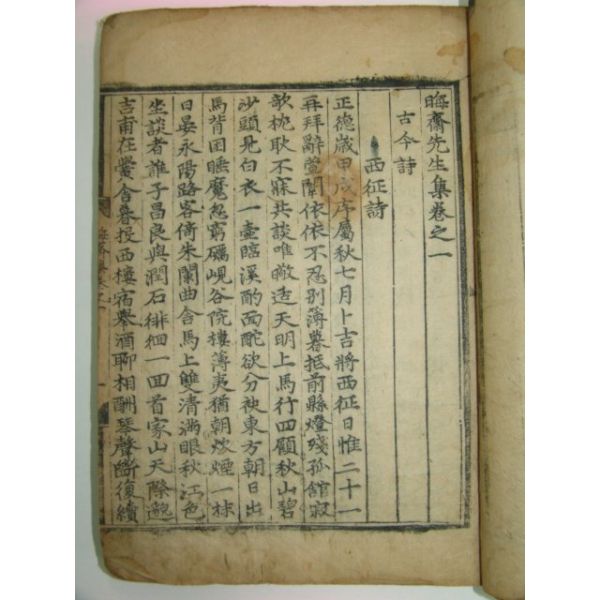 晦齋先生集卷之一
古今詩
西征詩
正德歲甲戌序屬秋七月卜吉將西征日惟二十一
再拜辭萱闈依依不忍別薄暮抵前縣燈殘孤館寂
歌枕耿不寐共談唯檄迄天明上馬行四顧秋山碧
沙頭見白衣一壺臨溪酌面酡欲分袂東方朝日出
馬背困睡魔忽窮礪峴谷院樓薄夷猶朝炊煙一抹
日晏永陽路客倚朱闌曲含馬上雙清滿眼秋江色
坐談者誰子昌良與潤石徘徊一回首家山天際邈
吉甫在黌舍暮投西樓宿舉酒聊相酬琴聲斷復續